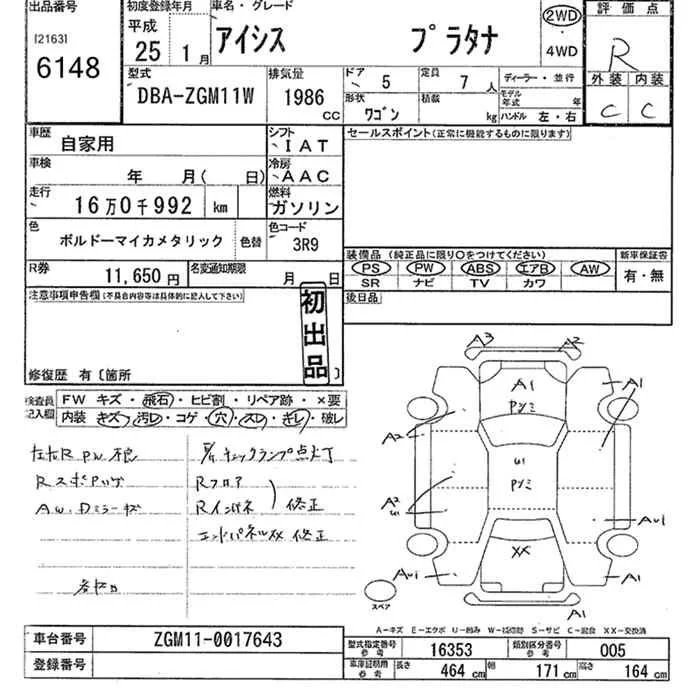 出品番号
[2163]
6148
初度登録年月
平成
25 1月
車名・グレード
アイシス プラタナ
2WD
・
4WD
評価点
R
外装 内装
C C
型式
DBA-ZGM11W
排気量
1986
CC
ドア 5
定員 7 人
ディーラー・並行
形状 ワゴン
積載 kg
モデル年式 年
ハンドル 左・右
車歴 自家用
シフト
IAT
セールスポイント(正常に機能するものに限ります)
車検 年 月( 日)
冷房
AAC
走行
16万0千992 km
燃料
ガソリン
色
ボルドーマイカメタリック
色替
色コード
3R9
装備品(純正品に限り○をつけてください)
新車保証書
PS PW ABS エアB AW
SR ナビ TV カワ
有・無
R券 11,650円
名変通知期限 月 日
後日品
注意事項申告欄(不具合内容等は具体的に記入して下さい)
初出品
修復歴 有[箇所 ]
検査員記入欄
FW キズ・飛石・ヒビ割・リペア跡・×要
内装・キズ・汚レ・コゲ・穴・スレ・キレ・破レ
チェックランプ点灯
Rフロア
Rインパネ 修正
エンドパネルXX 修正
A3 A2
A1
A1
A2
A2
U1
U1
XX
AU1
AU1
A1
A1
スペア
A-キズ E-エクボ U-凹み W-波修跡 S-サビ C-腐食 XX-交換済
車台番号 ZGM11-0017643
登録番号
型式指定番号 参考 16353
類別区分番号 参考 005
車庫証明用 参考
長さ 464 cm 幅 171 cm 高さ 164 cm